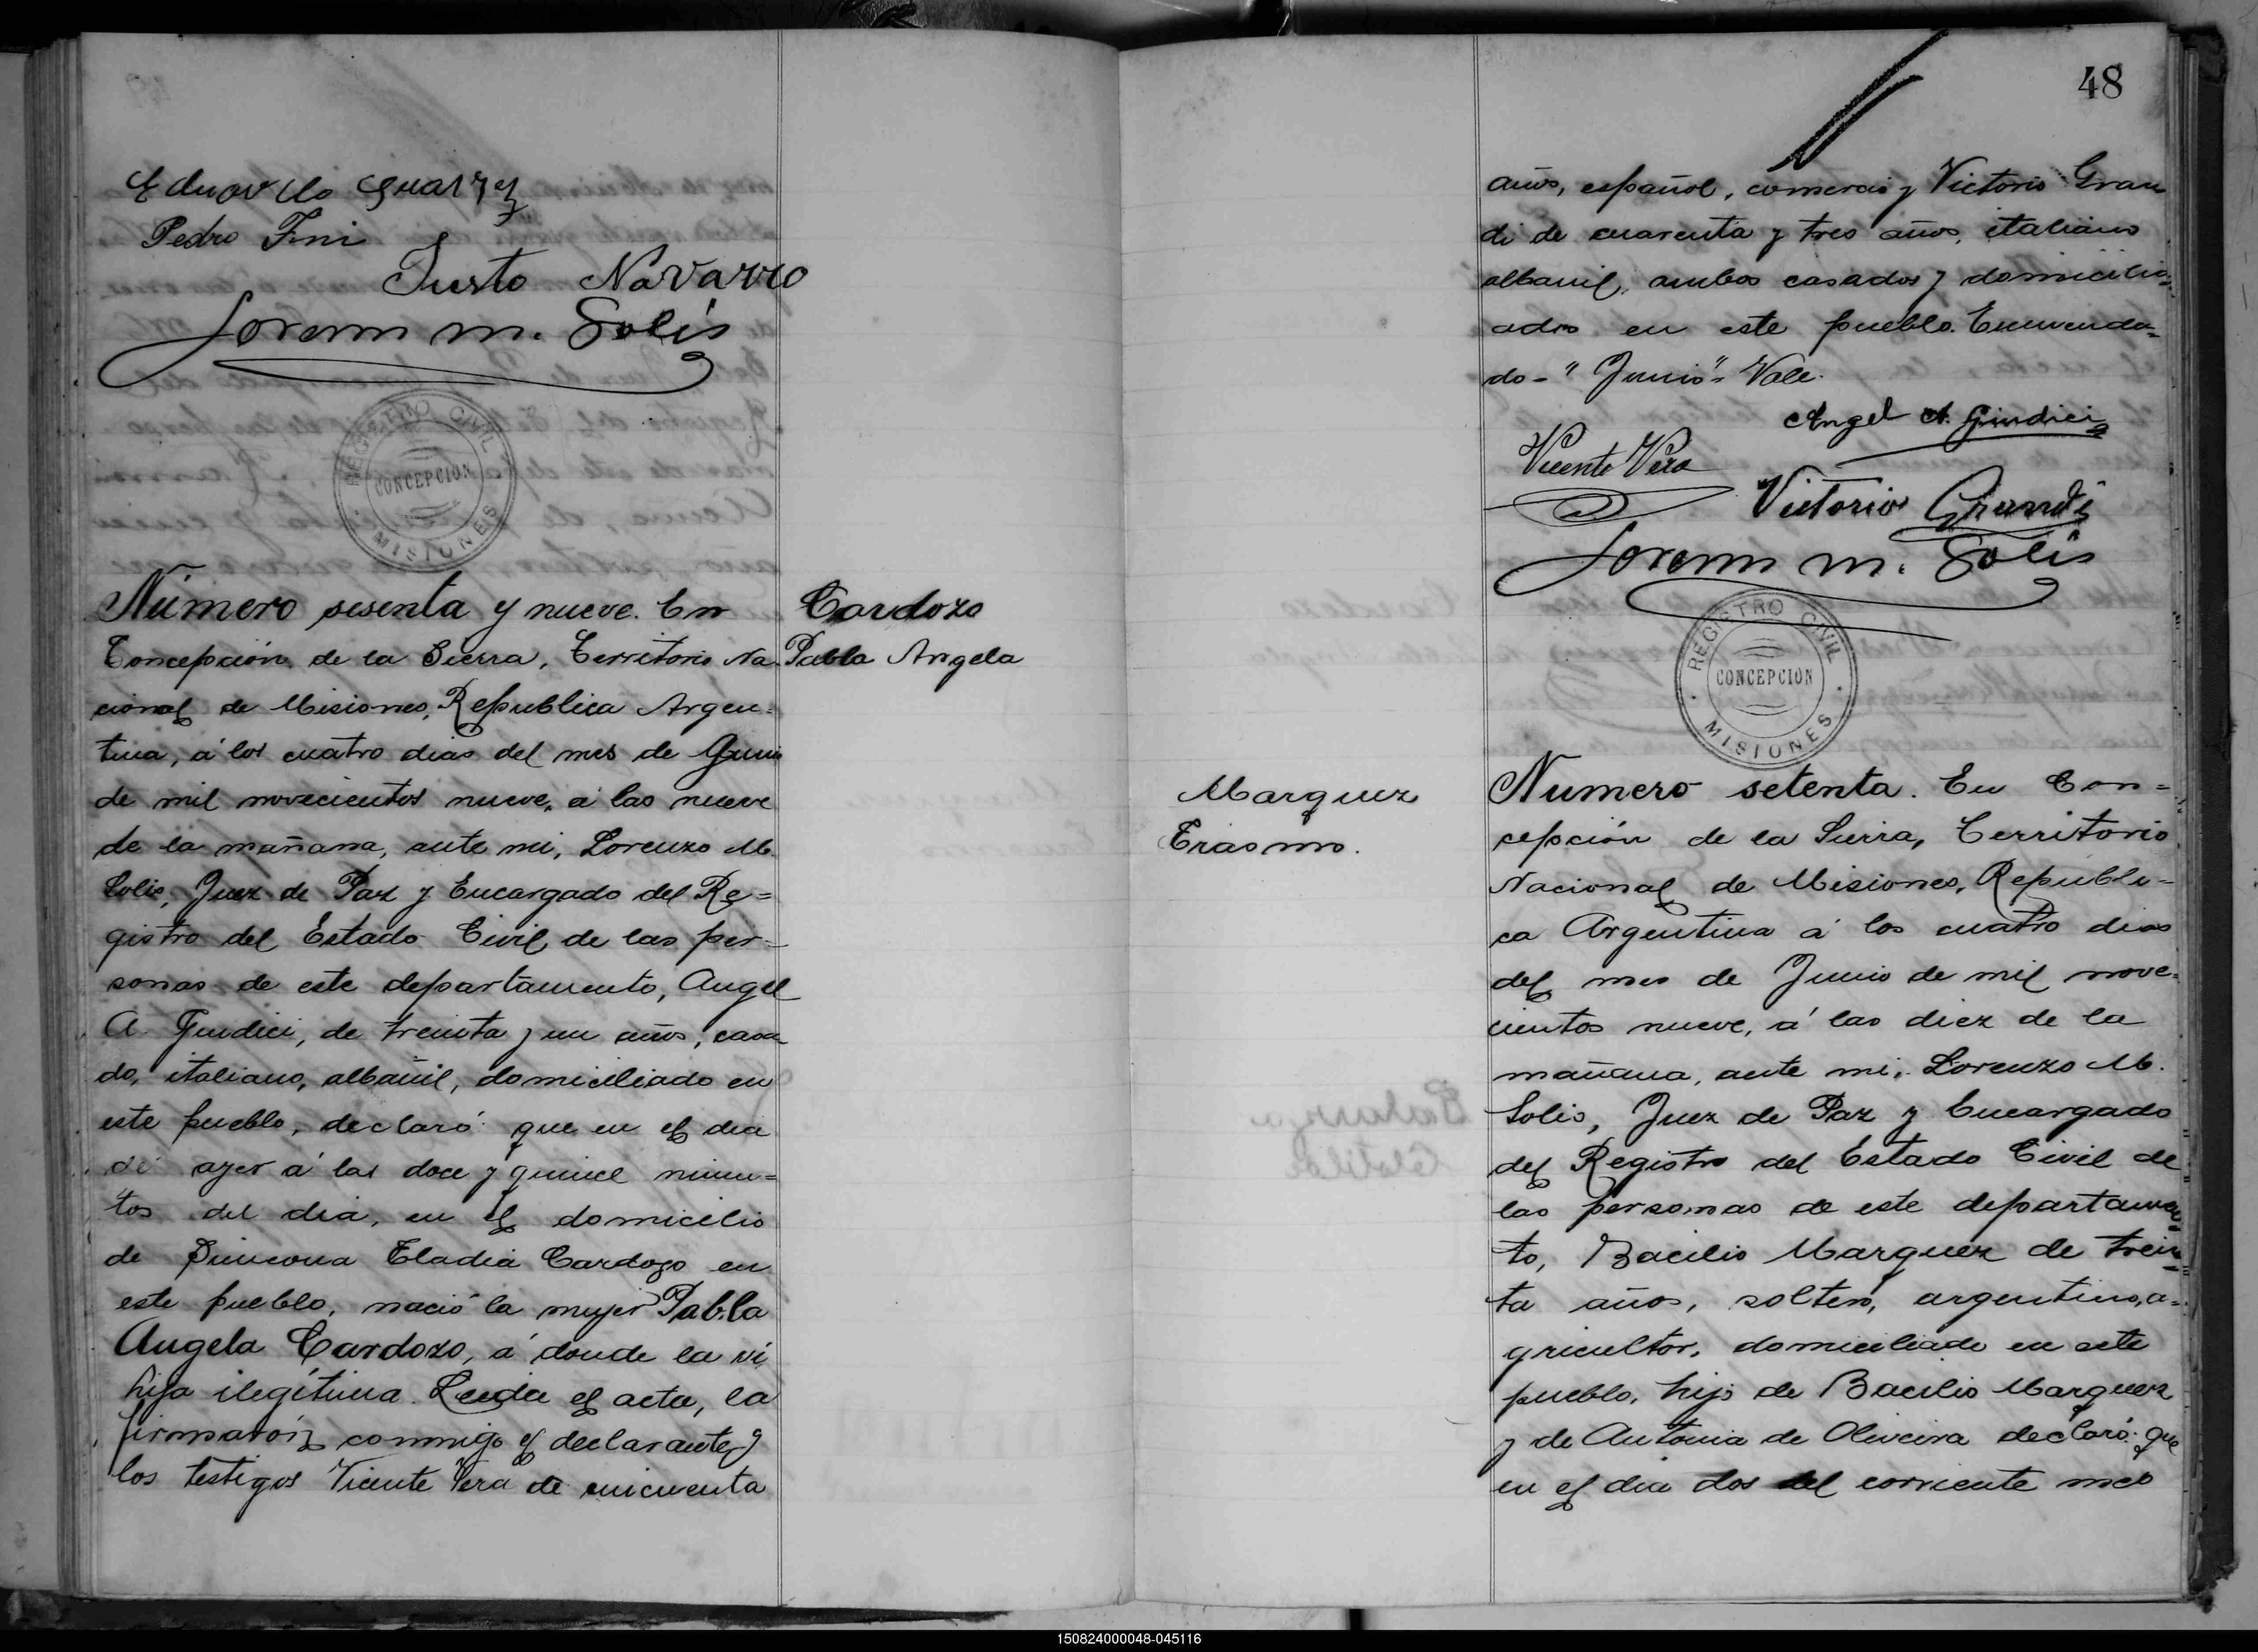 Pedro Fini
Justo Navarro
Lorenzo M. Solís
REGISTRO CIVIL
CONCEPCION
MISIONES
Número sesenta y nueve. En
Concepción de la Sierra, Territorio Na-
cional de Misiones, República Argen=
tina, á los cuatro dias del mes de Junio
de mil novecientos nueve, á las nueve
de la mañana, ante mi, Lorenzo M.
Solis, Juez de Paz y Encargado del Re=
gistro del Estado Civil de las per-
sonas de este departamento, Angel
A. Giudici, de treinta y un años, casa
do, italiano, albañil, domiciliado en
este pueblo, declaró: que en el dia
de ayer á las doce y quince minu=
tos del dia, en el domicilio
de Eladia Cardozo en
este pueblo, nació la mujer Pabla
Angela Cardozo, á donde la ví
hija ilegítima. Leida el acta, la
firmarón conmigo el declarante y
los testigos Vicente Vera de cincuenta
Cardozo
Pabla Angela
48
años, español, comercio y Victorio Gran
di de cuarenta y tres años, italiano
albanil, ambos casados y domicili=
ados en este pueblo. Enmenda=
do-"Junio"-Vale.
Angel A. Giudici
Vicente Vera
Victorio Grandi
Lorenzo M. Solís
REGISTRO CIVIL
CONCEPCION
MISIONES
Marquez
Erasmo.
Numero setenta. En Con=
cepción de la Sierra, Territorio
Nacional de Misiones, Republi-
ca Argentina á los cuatro dias
del mes de Junio de mil nove=
cientos nueve, á las diez de la
mañana, ante mi, Lorenzo M.
Solis, Juez de Paz y Encargado
del Registro del Estado Civil de
las personas de este departamen=
to, Bacilio Marquez de trein=
ta años, soltero, argentino, a=
gricultor, domiciliado en este
pueblo, hijo de Bacilio Marquez
y de Antonia de Oliveira declaró: que
en el dia dos del corriente mes
150824000048-045116